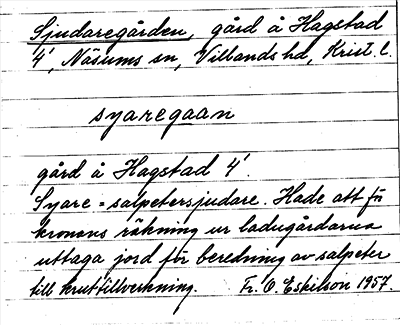 Sjudaregården, gård å Hagstad
4', Näsums sn, Villands hd, Krist. l.
syaregaan
gård å Hagstad 4'.
Syare = salpetersjudare. Hade att för
kronans räkning ur ladugårdarna
uttaga jord för beredning av salpeter
till kruttillverkning. Fr. O. Eskilson 1957.